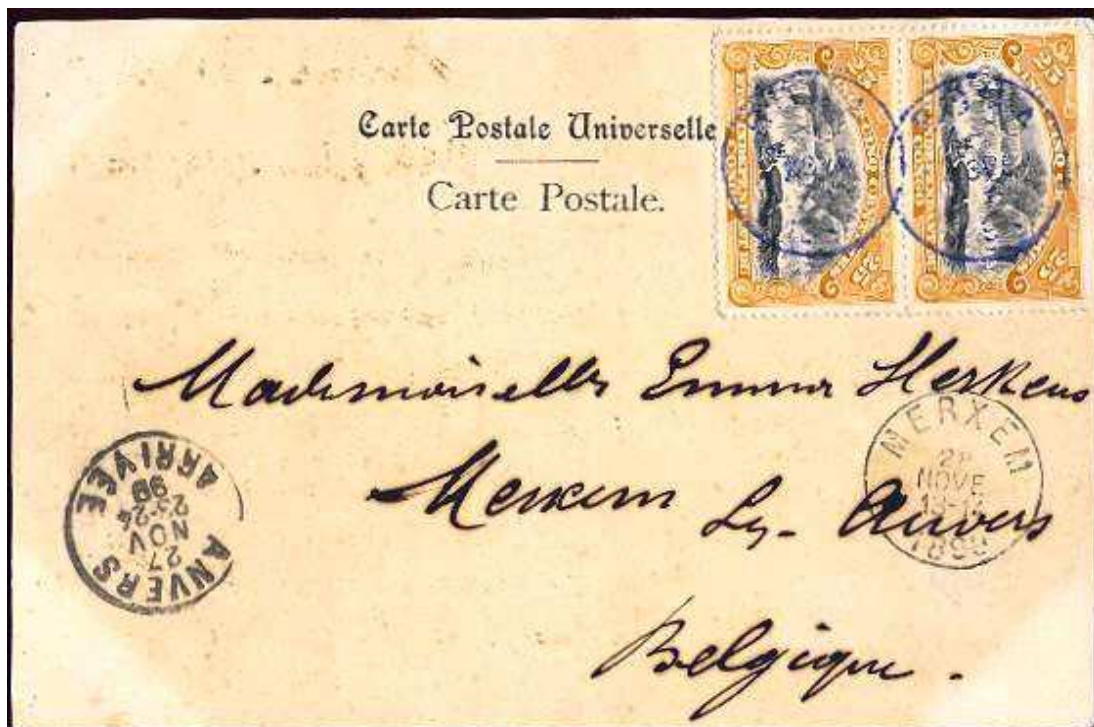 Carte Postale Universelle
Carte Postale.
Mademoiselle Emma Herkens
Merxem
Lez- Anvers
Belgique.
MERXEM
NOVE
ANVERS
27
NOV
23-24
ARRIVÉE
25
25
25
25